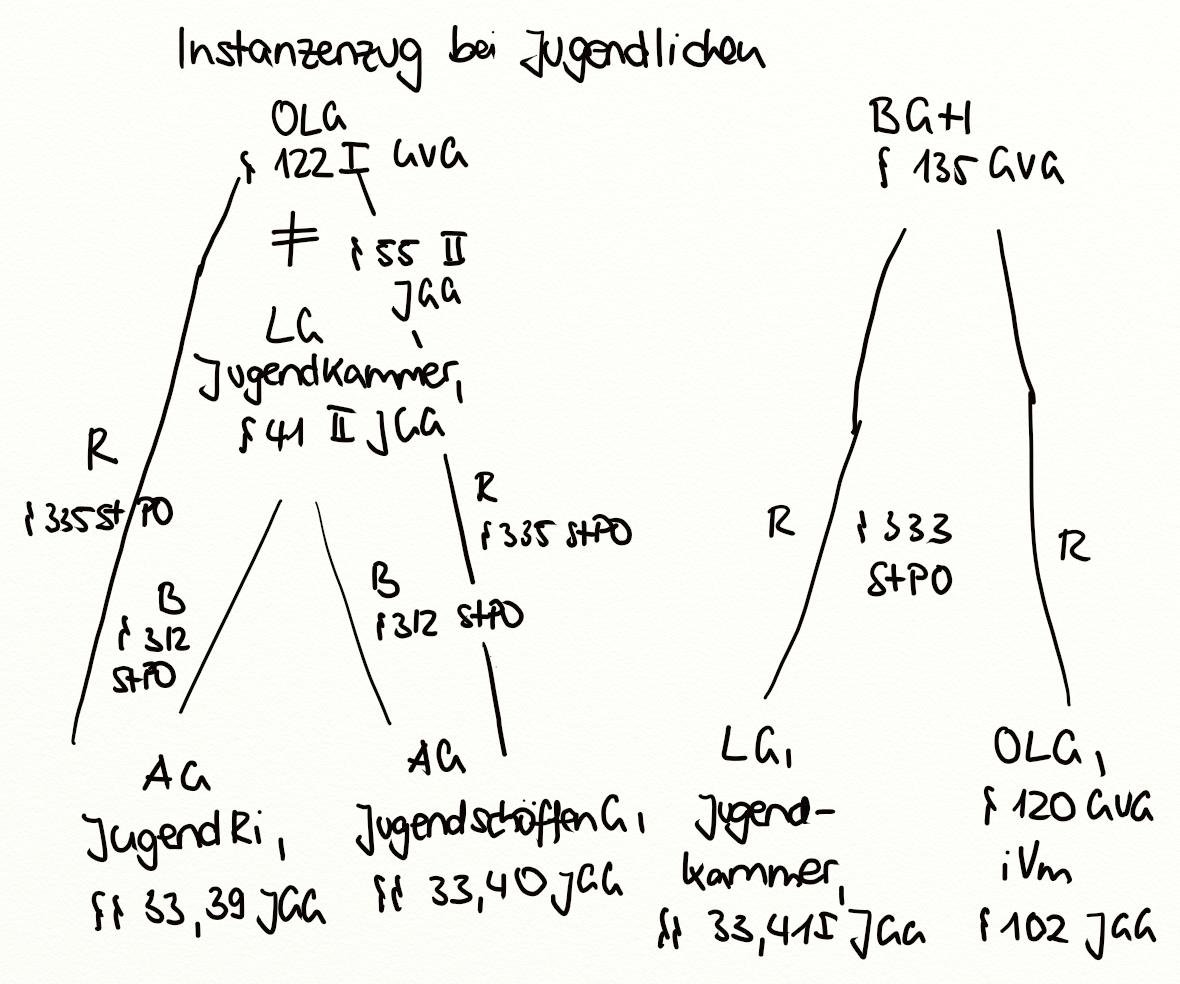 Instanzenzug bei Jugendlichen
OLG
§ 122 I GVG
≠
§ 55 II
JGG
LG
Jugendkammer,
§ 41 II JGG
R
§ 335 StPO
B
§ 312
StPO
B
§ 312 StPO
R
§ 335 StPO
AG
JugendRi,
§§ 33, 39 JGG
AG
JugendschöffenG,
§§ 33, 40 JGG
BGH
§ 135 GVG
R
§ 333
StPO
R
LG,
Jugend-
kammer,
§§ 33, 41 I JGG
OLG,
§ 120 GVG
iVm
§ 102 JGG